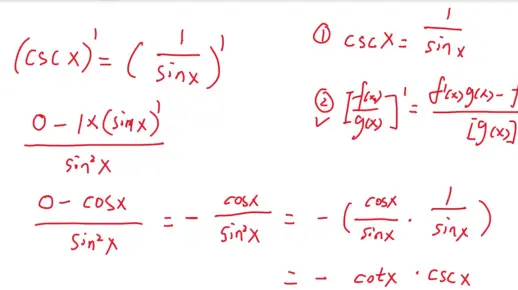 (cscx)' = (1/sinx)'
① cscx = 1/sinx
② [f(x)/g(x)]' = f'(x)g(x) - f
[g(x)]
✓
0 - 1×(sinx)'/sin²x
0 - cosx/sin²x = - cosx/sin²x = - (cosx/sinx · 1/sinx)
= - cotx · cscx